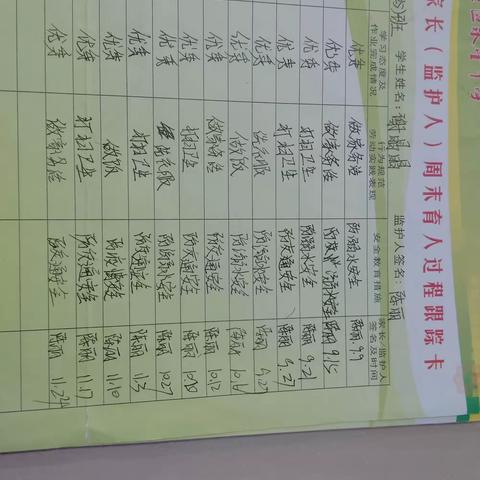 家长（监护人）周末育人过程跟踪卡
班 学生姓名：谢 监护人签名：陈丽
学习态度及 行为规范 安全教育措施 家长/监护人
作业完成情况 劳动实践表现 签名及时间
优秀 做家务活 防溺水安全 陈丽 9.9
优秀 做家务活 防交 溺水安全 陈丽 9.15
优秀 打扫卫生 防溺水安全 陈丽 9.21
优秀 打扫卫生 防交通安全 陈丽 9.27
优秀 洗衣服 防溺水安全 陈丽 9.27
优秀 做饭 防溺水安全 陈丽
优秀 做家务活 防交通安全 陈丽 10.12
优秀 打扫卫生 防交通安全 陈丽
优秀 洗衣服 防溺水安全 陈丽 10.27
优秀 打扫卫生 防交通安全 陈丽 11.3
优秀 做饭 防溺水安全 陈丽 11.10
优秀 打扫卫生 防交通安全 陈丽 11.17
优秀 做家务活 防交通安全 陈丽 11.24